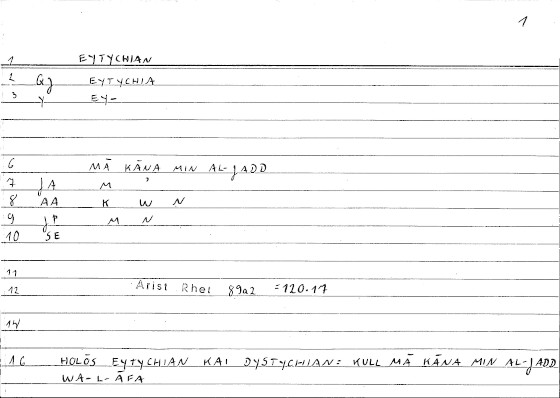 1
1 EYTYCHIAN
2 GJ EYTYCHIA
3 Y EY-
6 MĀ KĀNA MIN AL-JADD
7 JA M ʾ
8 AA K W N
9 JP M N
10 SE
11
12 Arist Rhet 89a2 =120.17
14
16 HOLŌS EYTYCHIAN KAI DYSTYCHIAN: KULL MĀ KĀNA MIN AL-JADD
WA-L-ĀFA